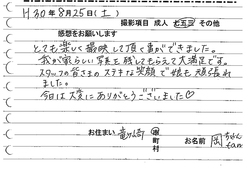 H30年8月25日(土)
撮影項目 成人 七五三 その他
感想をお願いします
とても楽しく撮映して頂く事ができました。
我が家らしい写真を残してもらえて大満足です。
スタッフの皆さまのステキな笑顔で娘も頑張れ
ました。
今日は大変にありがとうございました♡
お住まい 竜ヶ崎 市町村
お名前 岡ちゃんfam